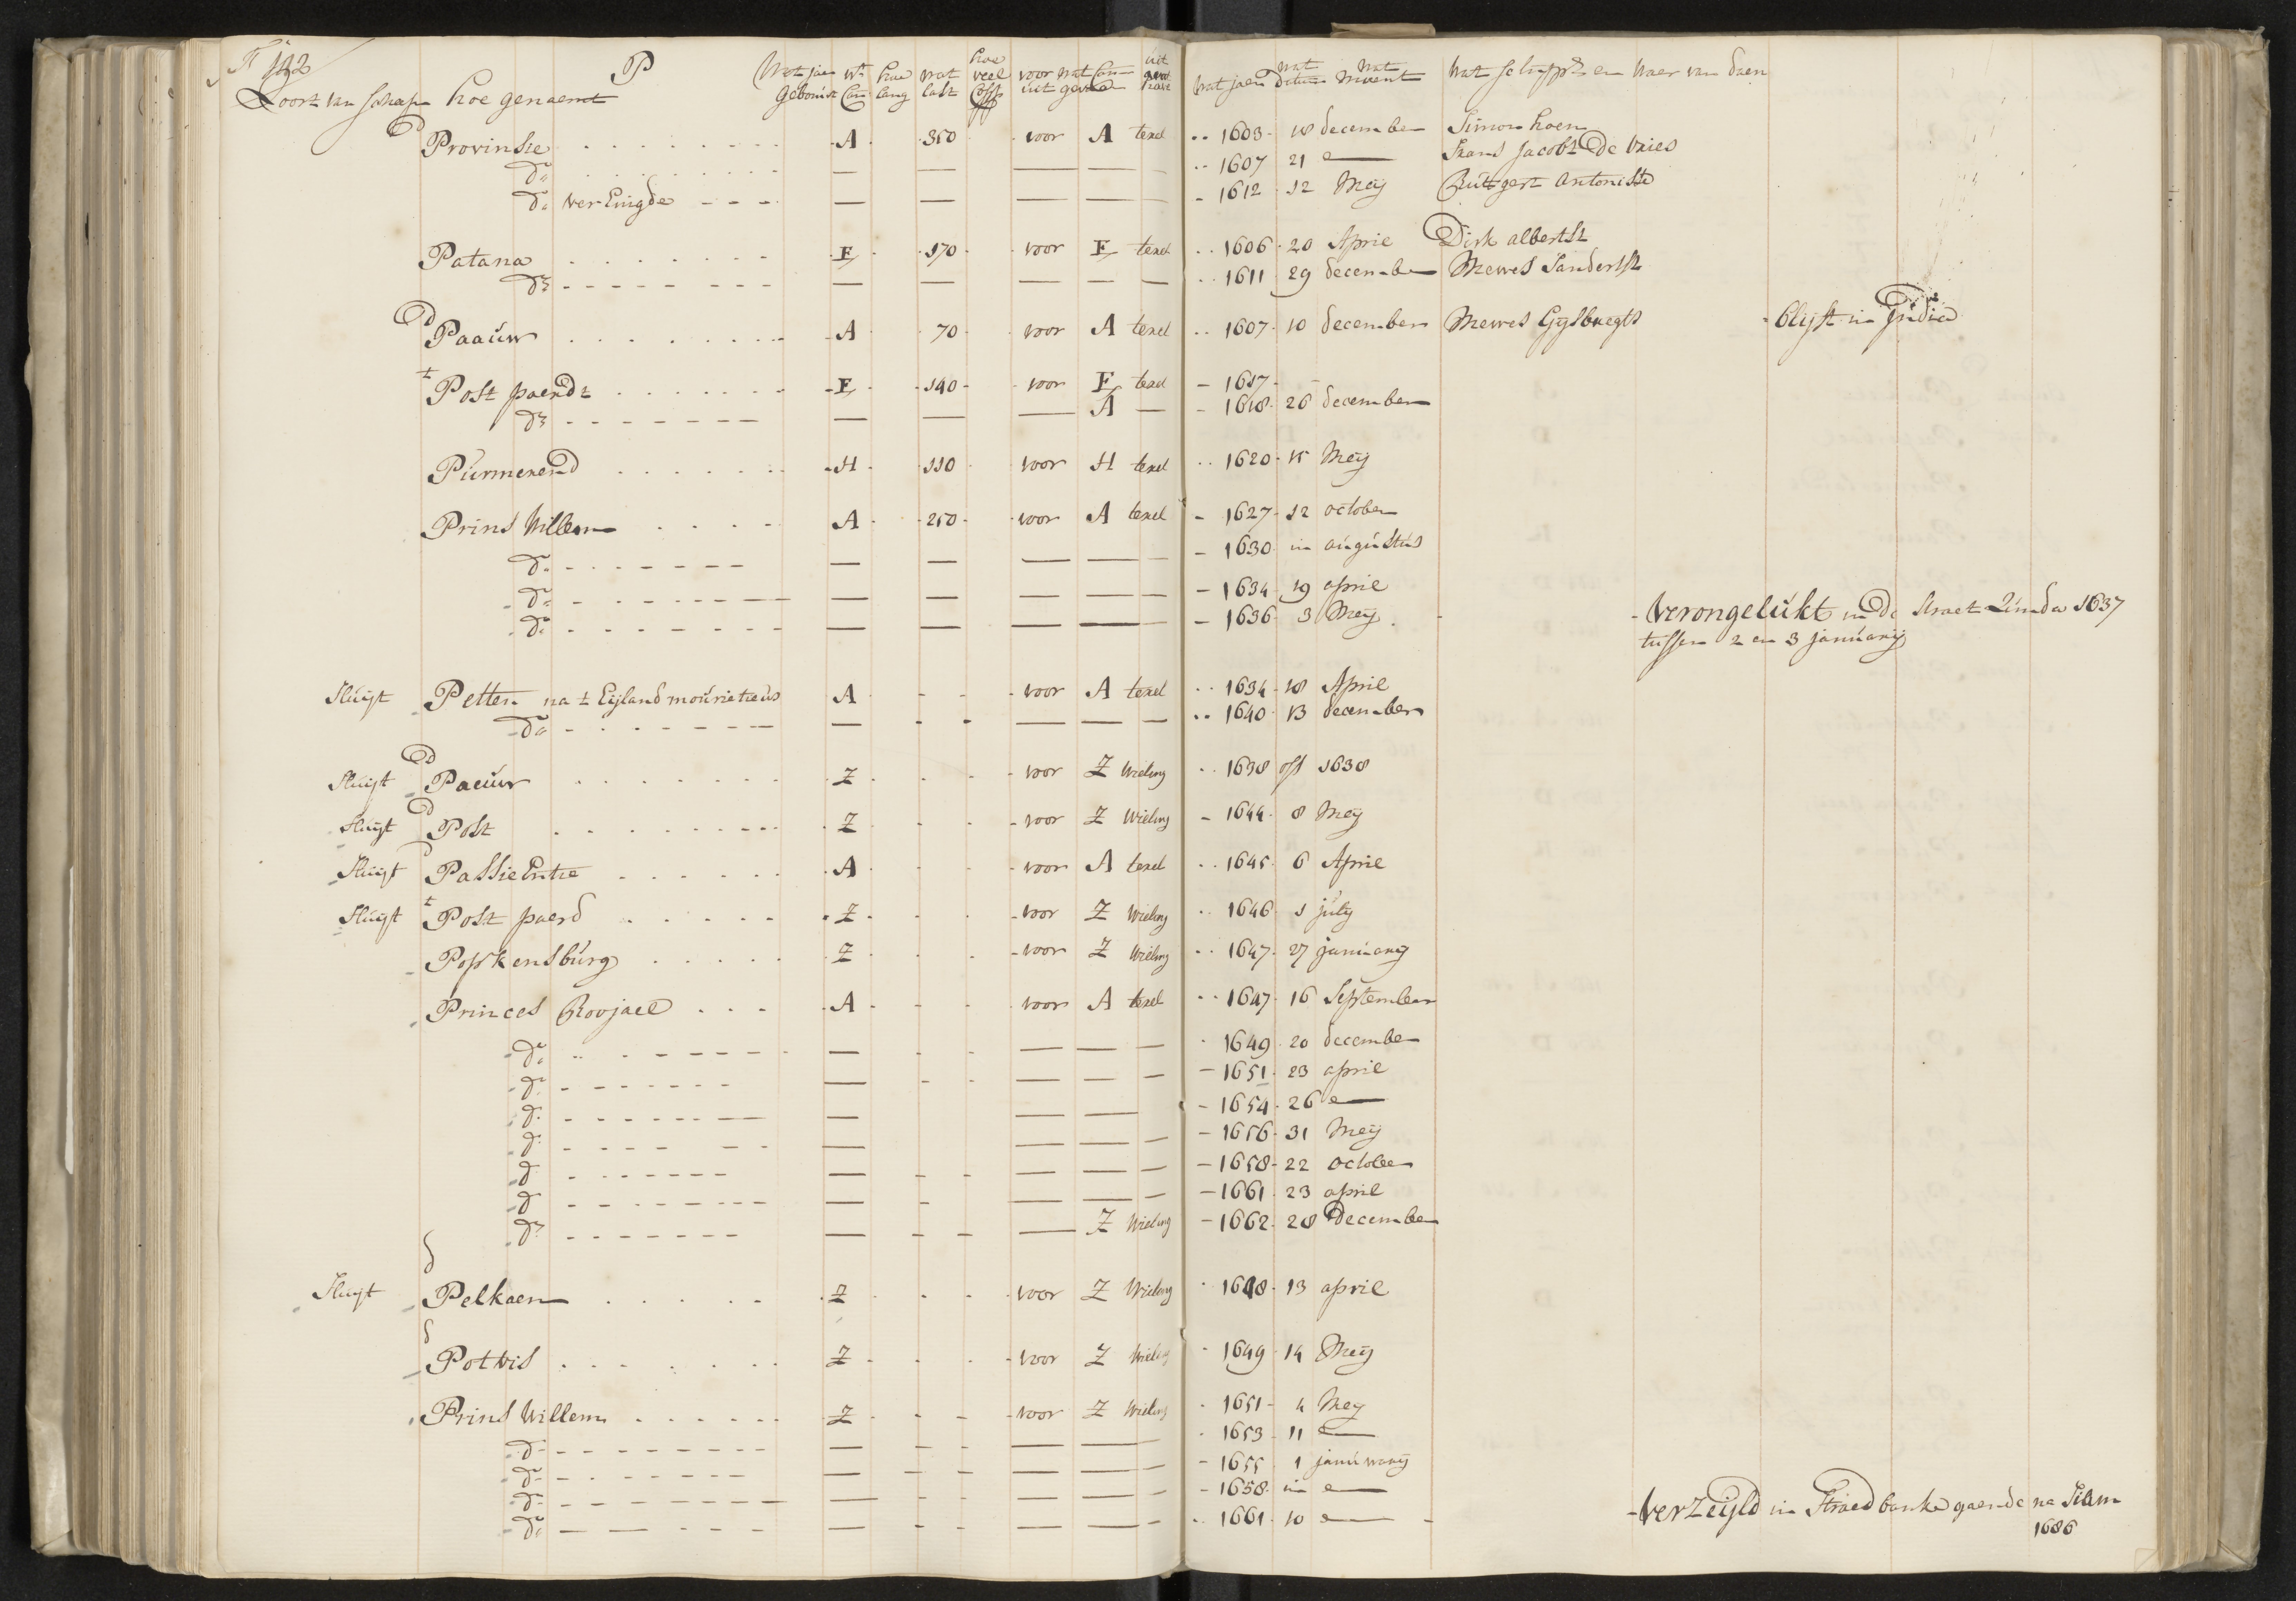 P
Soort van schepen hoe genaemt Wat jaer gebouwt hoe lang wat last hoe veel voor wat Cam uit wat jaer wat datum wat Maent Wat schipprs en Waer van daen
D Provinsie A 350 voor A texel 1603 18 december Simon hoen
do 1607 21 Frans Jacobs De Vries
do verEinigde 1612 12 Meij Rutgert Antonisse
Patana E 170 voor E texel 1606 20 April Dirk albertsz
do 1611 29 december Mewes Sandertsz
D Paauw A 70 voor A texel 1607 10 december Mewes Gijsbregts blijft in India
t Post paerdt E 140 voor E texel 1617
do A 1618 26 december
Purmerend H 110 voor H texel 1620 15 Meij
Prins Willem A 250 voor A texel 1627 12 october
do 1630 in augustus
do 1634 19 april
do 1636 3 Meij Verongelukt in de straet Sunda 1637
tussen 2 en 3 januarij
Fluijt Petten na t Eijland mouritieus A voor A texel 1634 18 April
do 1640 13 december
D
Fluijt Paeuw Z voor Z Wieling 1638 off 1638
D
Fluijt Post Z voor Z Wieling 1644 8 Meij
Fluijt PassieEntie A voor A texel 1645 6 April
Fluijt t Post paerd Z voor Z Wieling 1646 1 julij
Popkensburg Z voor Z Wieling 1647 27 januarij
Princes Roojael A voor A texel 1647 16 September
do 1649 20 december
do 1651 23 april
do 1654 26
do 1656 31 Meij
do 1658 22 october
do 1661 23 april
do Z Wieling 1662 28 December
Fluijt Pelkaen Z voor Z Wieling 1648 13 april
Potvis Z voor Z Wieling 1649 14 Meij
Prins Willem Z voor Z Wieling 1651 4 Meij
do 1653 11
do 1655 1 januwarij
do 1658 in
do 1661 10 Verzeijld in Straed banka gaende na Siam
1686